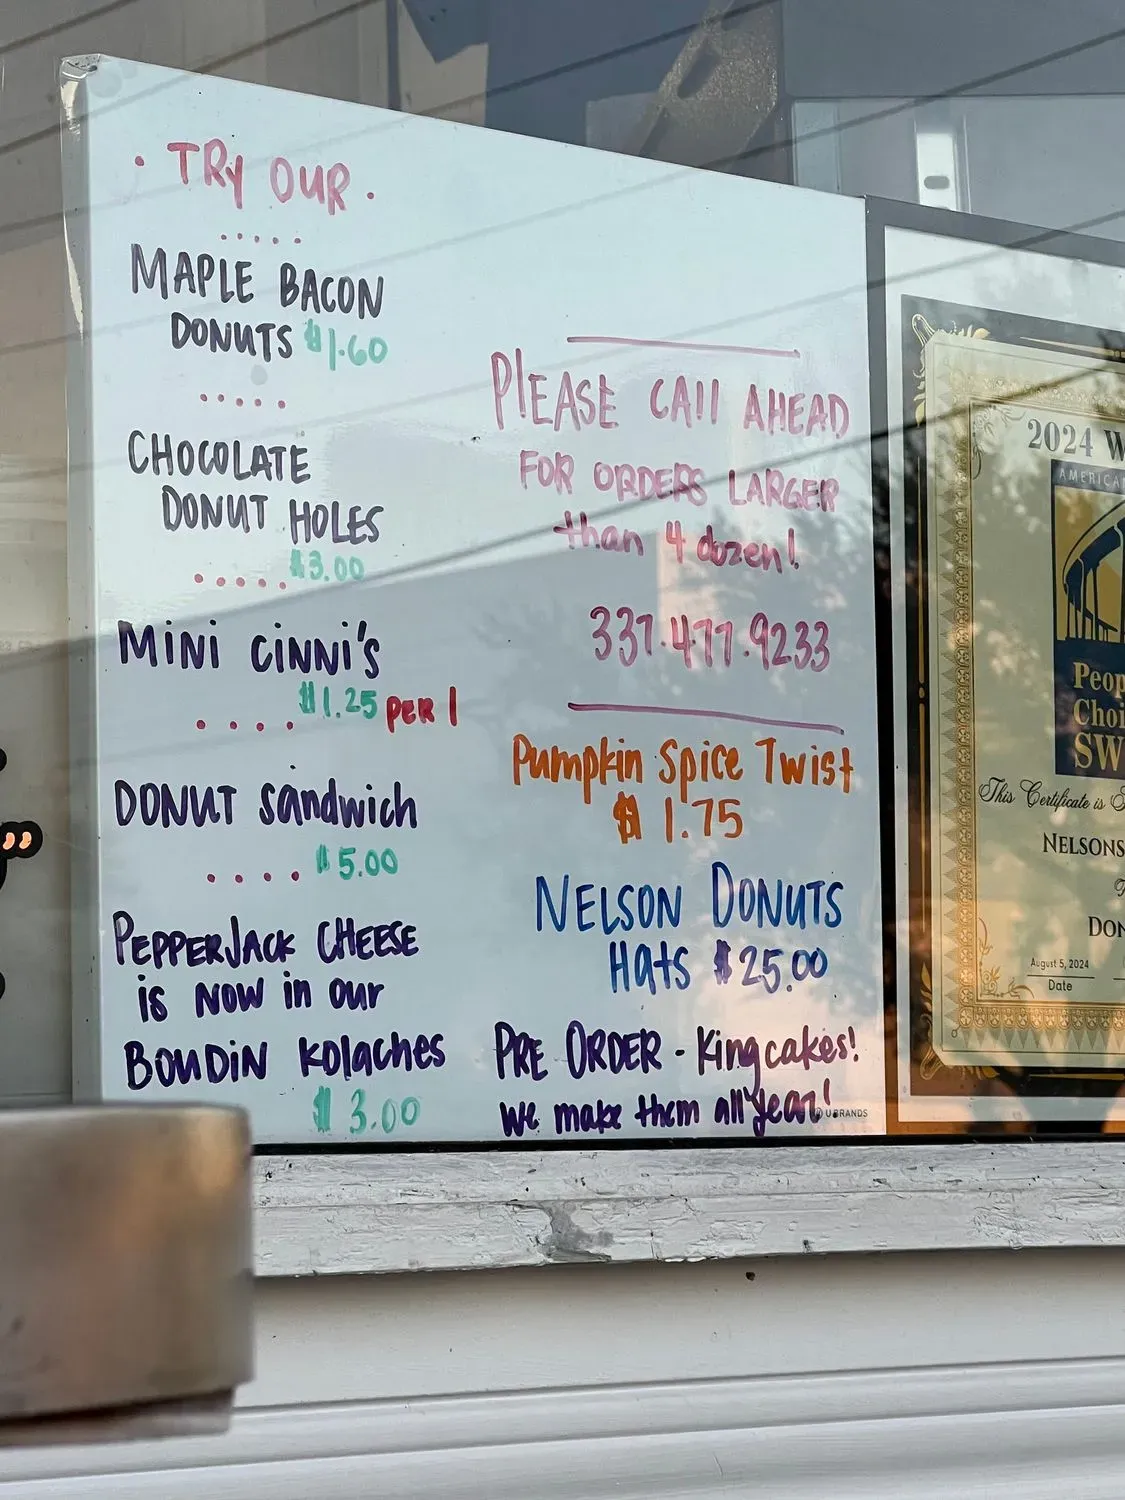 · TRY OUR ·
MAPLE BACON
DONUTS $1.60
CHOCOLATE
DONUT HOLES
$3.00
MINI CINNI'S
$1.25 PER 1
DONUT Sandwich
$5.00
PEPPERJACK CHEESE
is NOW in our
BOUDIN Kolaches
$3.00
PLEASE CAll AHEAD
FOR ORDERS LARGER
than 4 dozen!
337.477.9233
Pumpkin Spice Twist
$1.75
NELSON DONUTS
Hats $25.00
PRE ORDER - King cakes!
We make them all year!
UBRANDS
2024 W
AMERICA
Peop
Choi
SW
This Certificate is
NELSONS
DON
August 5, 2024
Date